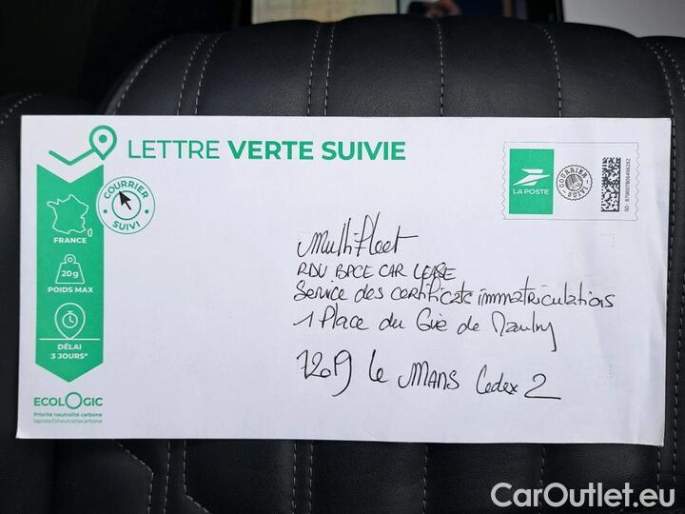 LETTRE VERTE SUIVIE
COURRIER
SUIVI
FRANCE
20g
POIDS MAX
DÉLAI
3 JOURS*
ECOLOGIC
Priorité neutralité carbone
LA POSTE
COURRIER
SUIVI
Multifleet
RDU BPCE CAR LEASE
Service des certificats immatriculations
1 Place du Gué de
le MANS Cedex 2
CarOutlet.eu